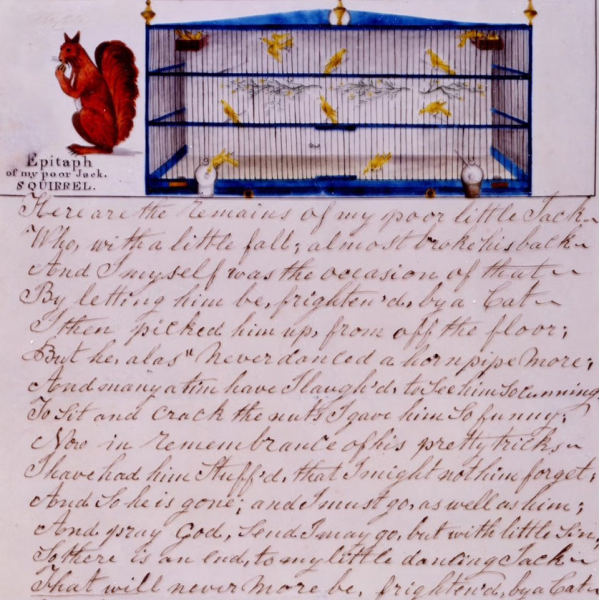 Epitaph
of my poor Jack.
SQUIRREL.
Here are the remains of my poor little Jack
Who, with a little fall; almost broke his back
And I myself was the occasion of that
By letting him be, frighten'd, by a Cat
I then picked him up, from off the floor;
But he, alas" never danced a hornpipe more;
And many a tim have I laugh'd, to See him So Cunning,
To Sit and crack the nuts I gave him So funny;
Now in remembrance of his pretty tricks
I have had him Stuff'd, that I might not him forget;
And So he is gone; and I must go, as well as him;
And, pray God, Send I may go, but with little Sin,
So there is an end, to my little dancing Jack
That will never more be, frighten'd, by a Cat